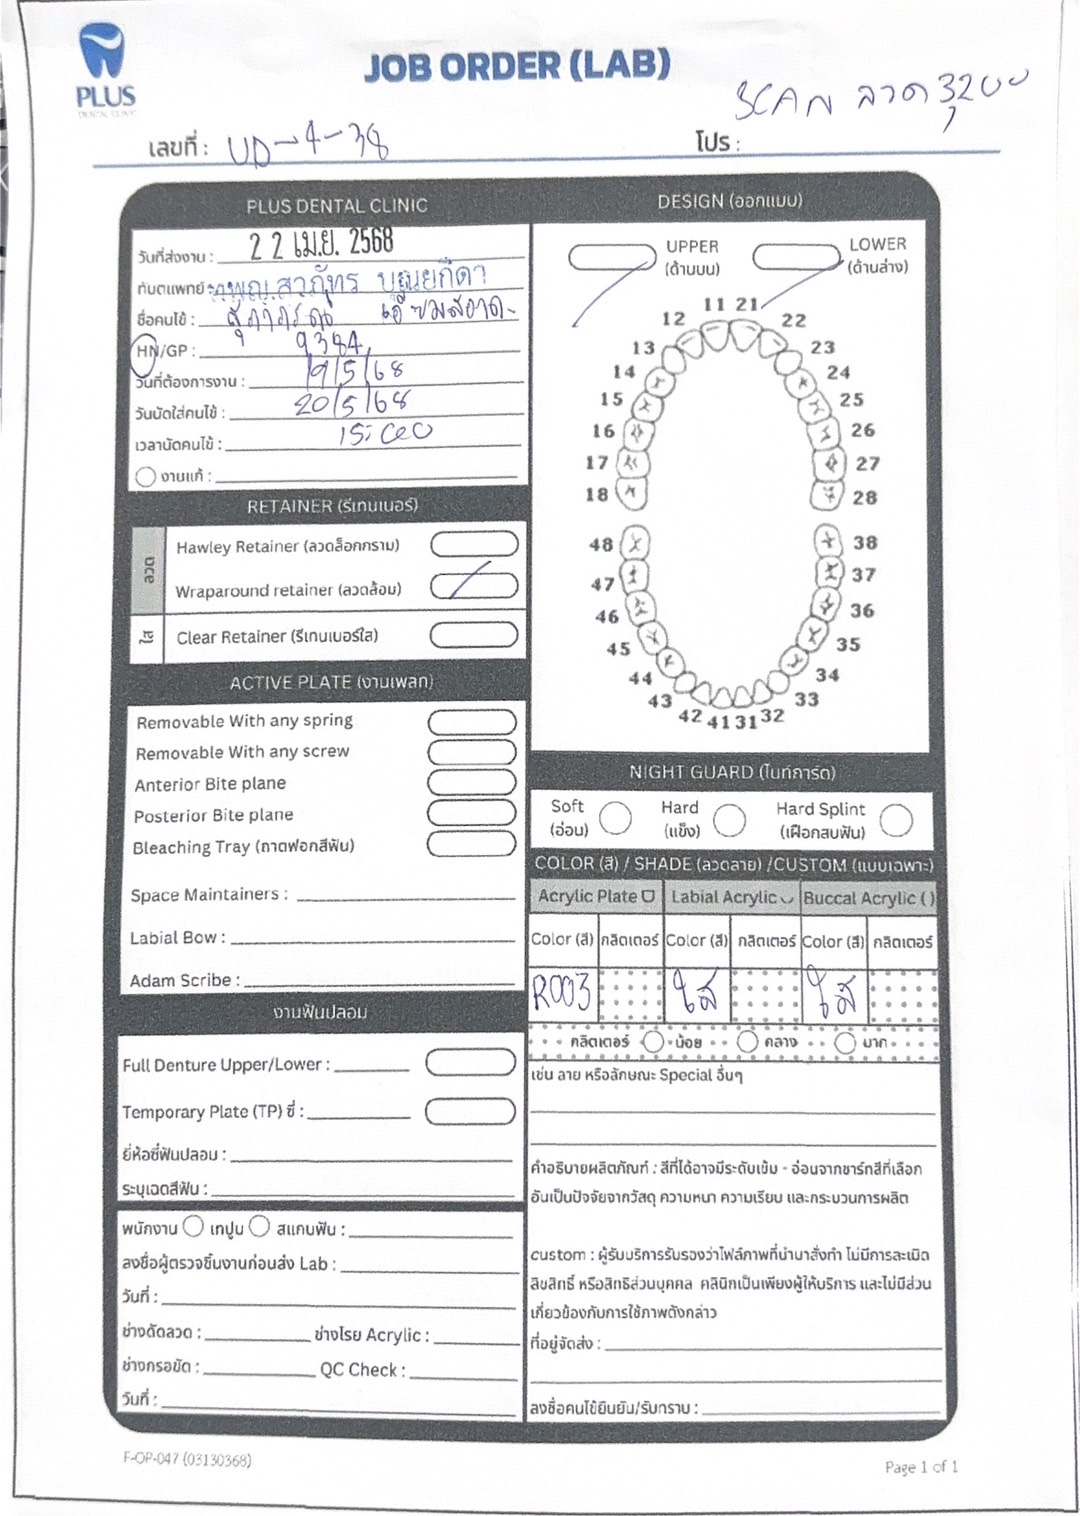 PLUS
DENTAL CLINIC
JOB ORDER (LAB)
SCAN ลวด 3,200
เลขที่ : UD-4-38
โปร :
PLUS DENTAL CLINIC
วันที่ส่งงาน : 22 เม.ย. 2568
ทันตแพทย์ :
ชื่อคนไข้ :
HN/GP : 9384
วันที่ต้องการงาน : 19/5/68
วันนัดใส่คนไข้ : 20/5/68
เวลานัดคนไข้ : 15:00
งานแก้ :
RETAINER (รีเทนเนอร์)
ลวด
Hawley Retainer (ลวดล็อกกราม)
Wraparound retainer (ลวดล้อม)
ใส
Clear Retainer (รีเทนเนอร์ใส)
ACTIVE PLATE (งานเพลท)
Removable With any spring
Removable With any screw
Anterior Bite plane
Posterior Bite plane
Bleaching Tray (ถาดฟอกสีฟัน)
Space Maintainers :
Labial Bow :
Adam Scribe :
งานฟันปลอม
Full Denture Upper/Lower :
Temporary Plate (TP) ซี่ :
ยี่ห้อซี่ฟันปลอม :
ระบุเฉดสีฟัน :
พนักงาน เทปูน สแกนฟัน :
ลงชื่อผู้ตรวจชิ้นงานก่อนส่ง Lab :
วันที่ :
ช่างดัดลวด : ช่างโรย Acrylic :
ช่างกรอขัด : QC Check :
วันที่ :
DESIGN (ออกแบบ)
UPPER LOWER
(ด้านบน) (ด้านล่าง)
11 21
12 22
13 23
14 24
15 25
16 26
17 27
18 28
48 38
47 37
46 36
45 35
44 34
43 33
42 41 31 32
NIGHT GUARD (ไนท์การ์ด)
Soft Hard Hard Splint
(อ่อน) (แข็ง) (เฝือกสบฟัน)
COLOR (สี) / SHADE (ลวดลาย) /CUSTOM (แบบเฉพาะ)
Acrylic Plate Labial Acrylic Buccal Acrylic ( )
Color (สี) กลิตเตอร์ Color (สี) กลิตเตอร์ Color (สี) กลิตเตอร์
R003 ใส ใส
กลิตเตอร์ น้อย กลาง มาก
เช่น ลาย หรือลักษณะ Special อื่นๆ
คำอธิบายผลิตภัณฑ์ : สีที่ได้อาจมีระดับเข้ม - อ่อนจากชาร์ทสีที่เลือก
อันเป็นปัจจัยจากวัสดุ ความหนา ความเรียบ และกระบวนการผลิต
custom : ผู้รับบริการรับรองว่าไฟล์ภาพที่นำมาสั่งทำ ไม่มีการละเมิด
ลิขสิทธิ์ หรือสิทธิส่วนบุคคล คลินิกเป็นเพียงผู้ให้บริการ และไม่มีส่วน
เกี่ยวข้องกับการใช้ภาพดังกล่าว
ที่อยู่จัดส่ง :
ลงชื่อคนไข้ยืนยัน/รับทราบ :
F-OP-047 (03130368)
Page 1 of 1